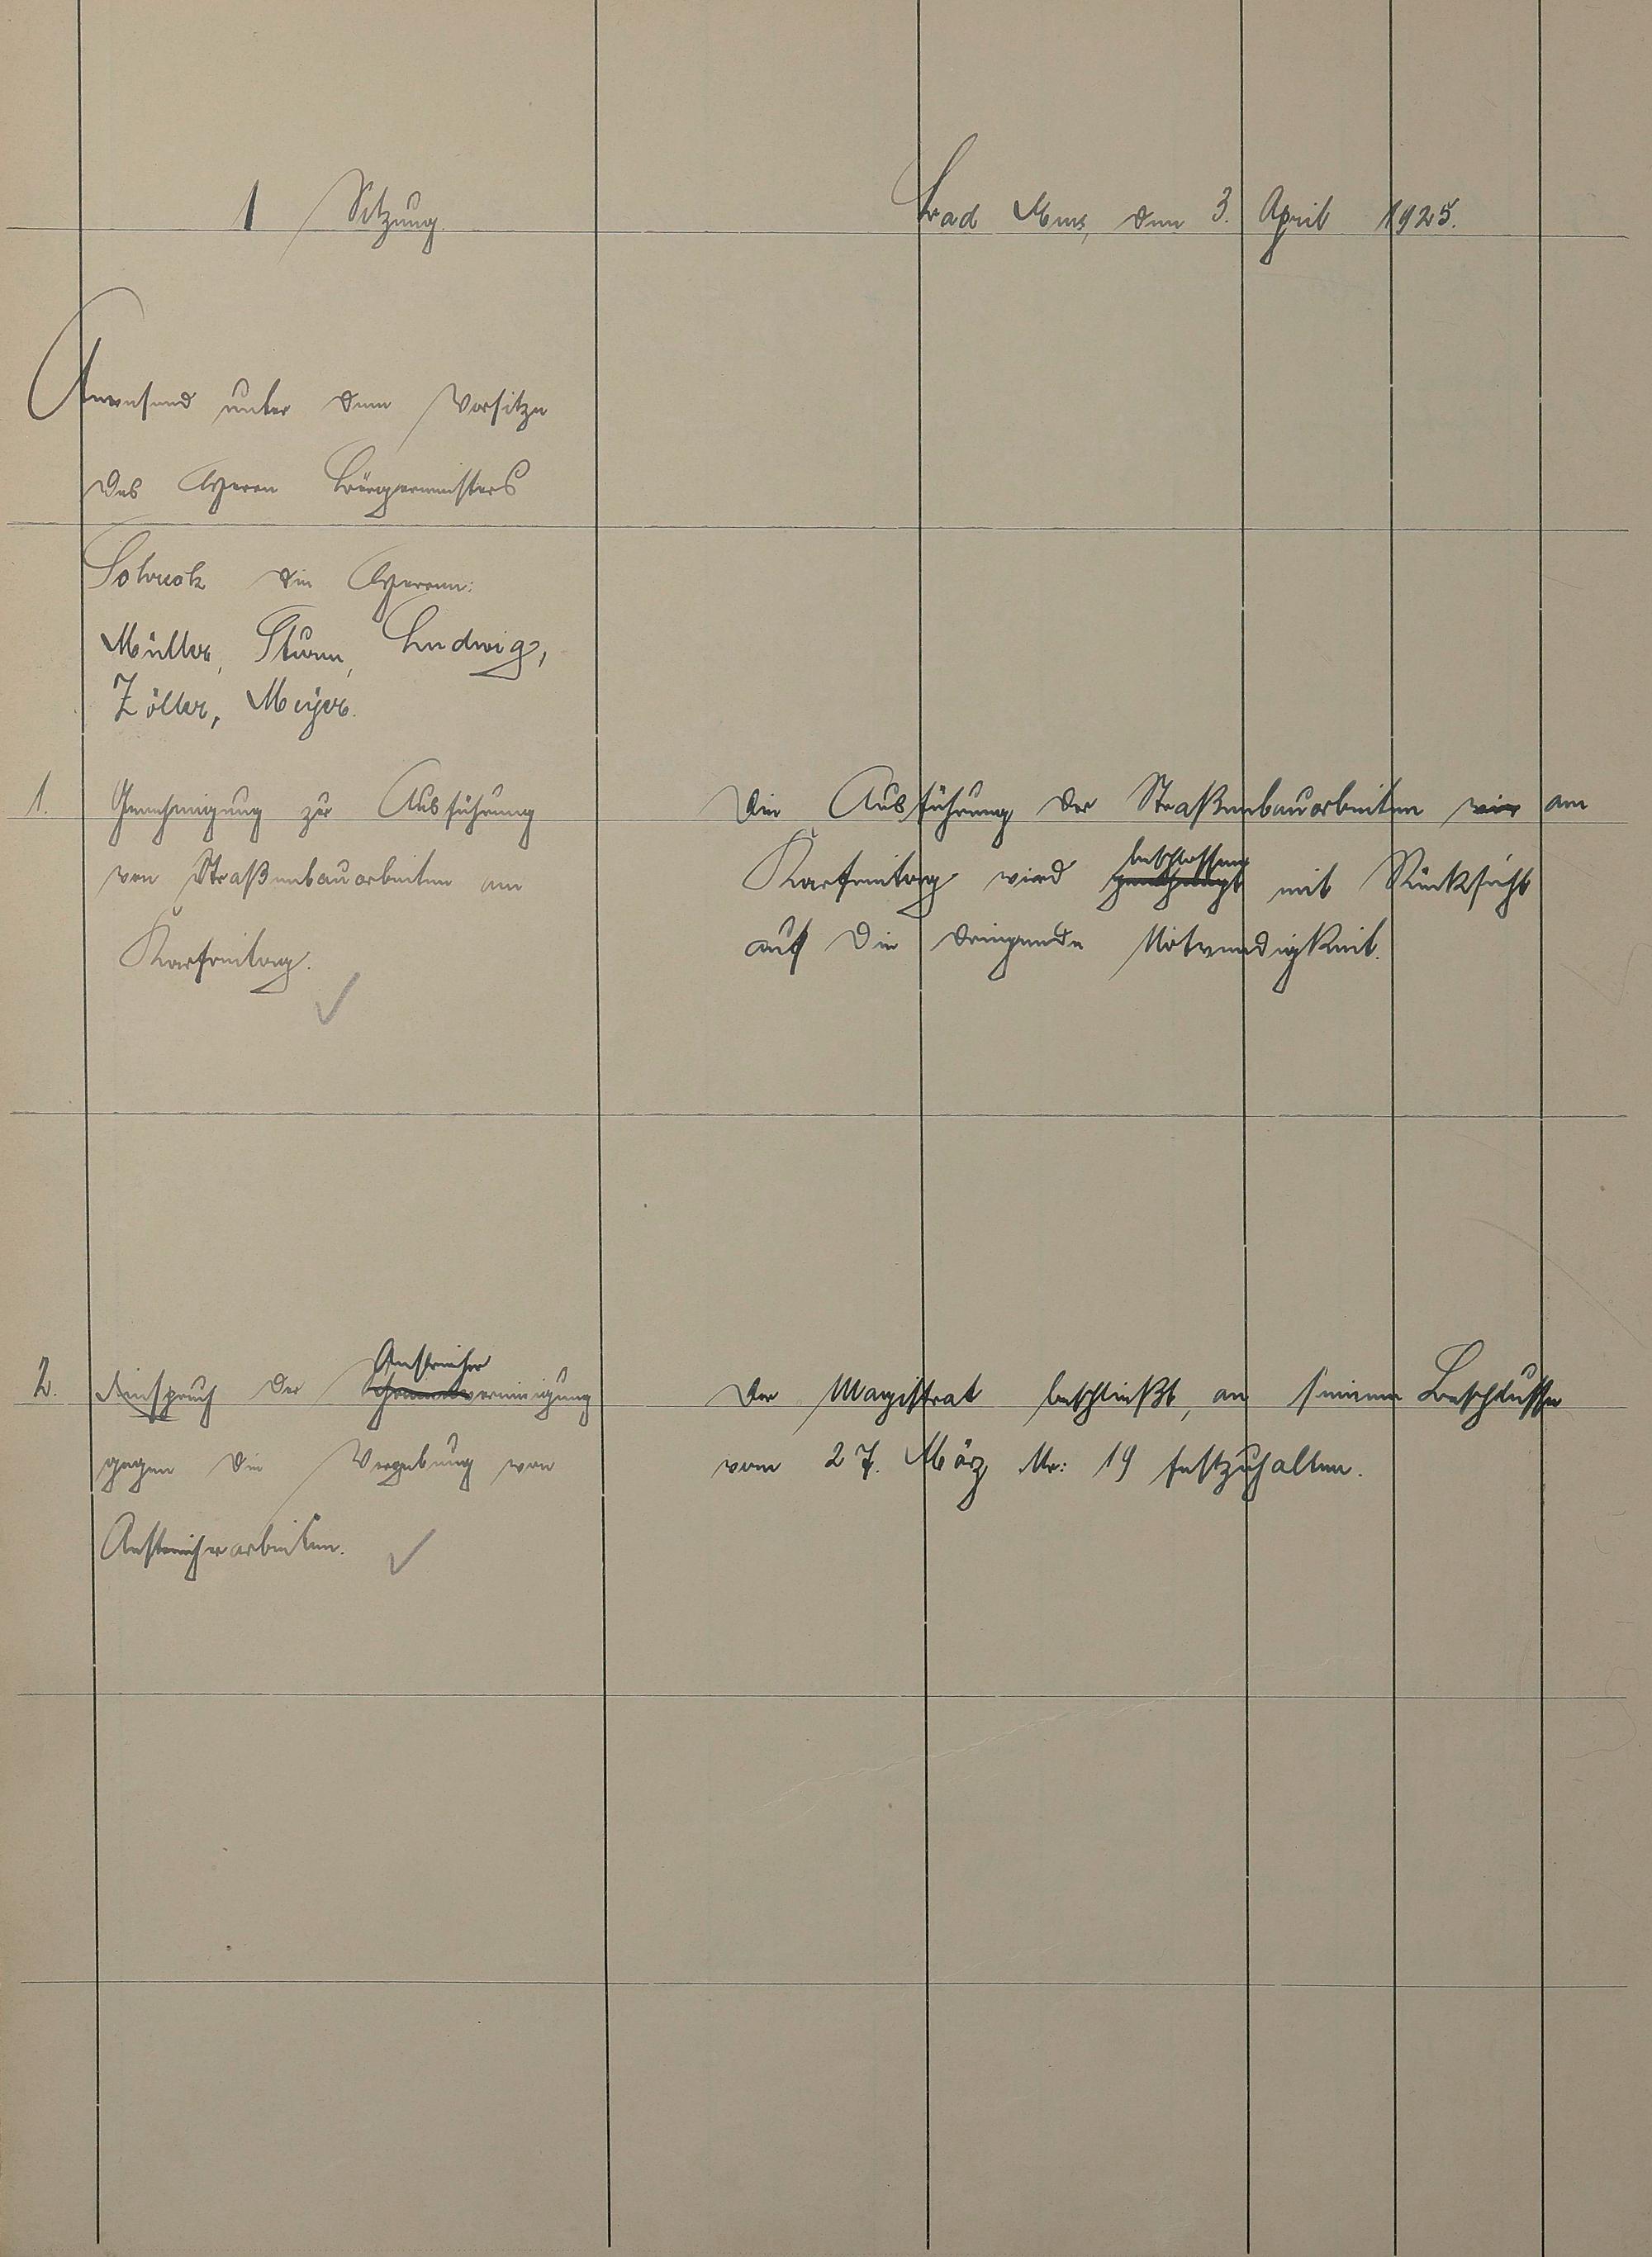 1 Sitzung
Bad Ems, den 3. April 1925.
Anwesend unter dem Vorsitze
des Herrn Bürgermeisters
Schuck die Herren:
Müller, Sturm, Ludwig,
Zöller, Meyer.
1. Genehmigung zur Ausführung
von Straßenbauarbeiten am
Karfreitag.
Die Ausführung der Straßenbauarbeiten wir am
beschlossen
Karfreitag wird genehmigt mit Rücksicht
auf die dringende Notwendigkeit.
Anstreicher
2. Einspruch der vereinigung
gegen die Vergebung von
Anstreicherarbeiten.
Der Magistrat beschließt, an seinem Beschlusse
vom 27. März Nr: 19 festzuhalten.